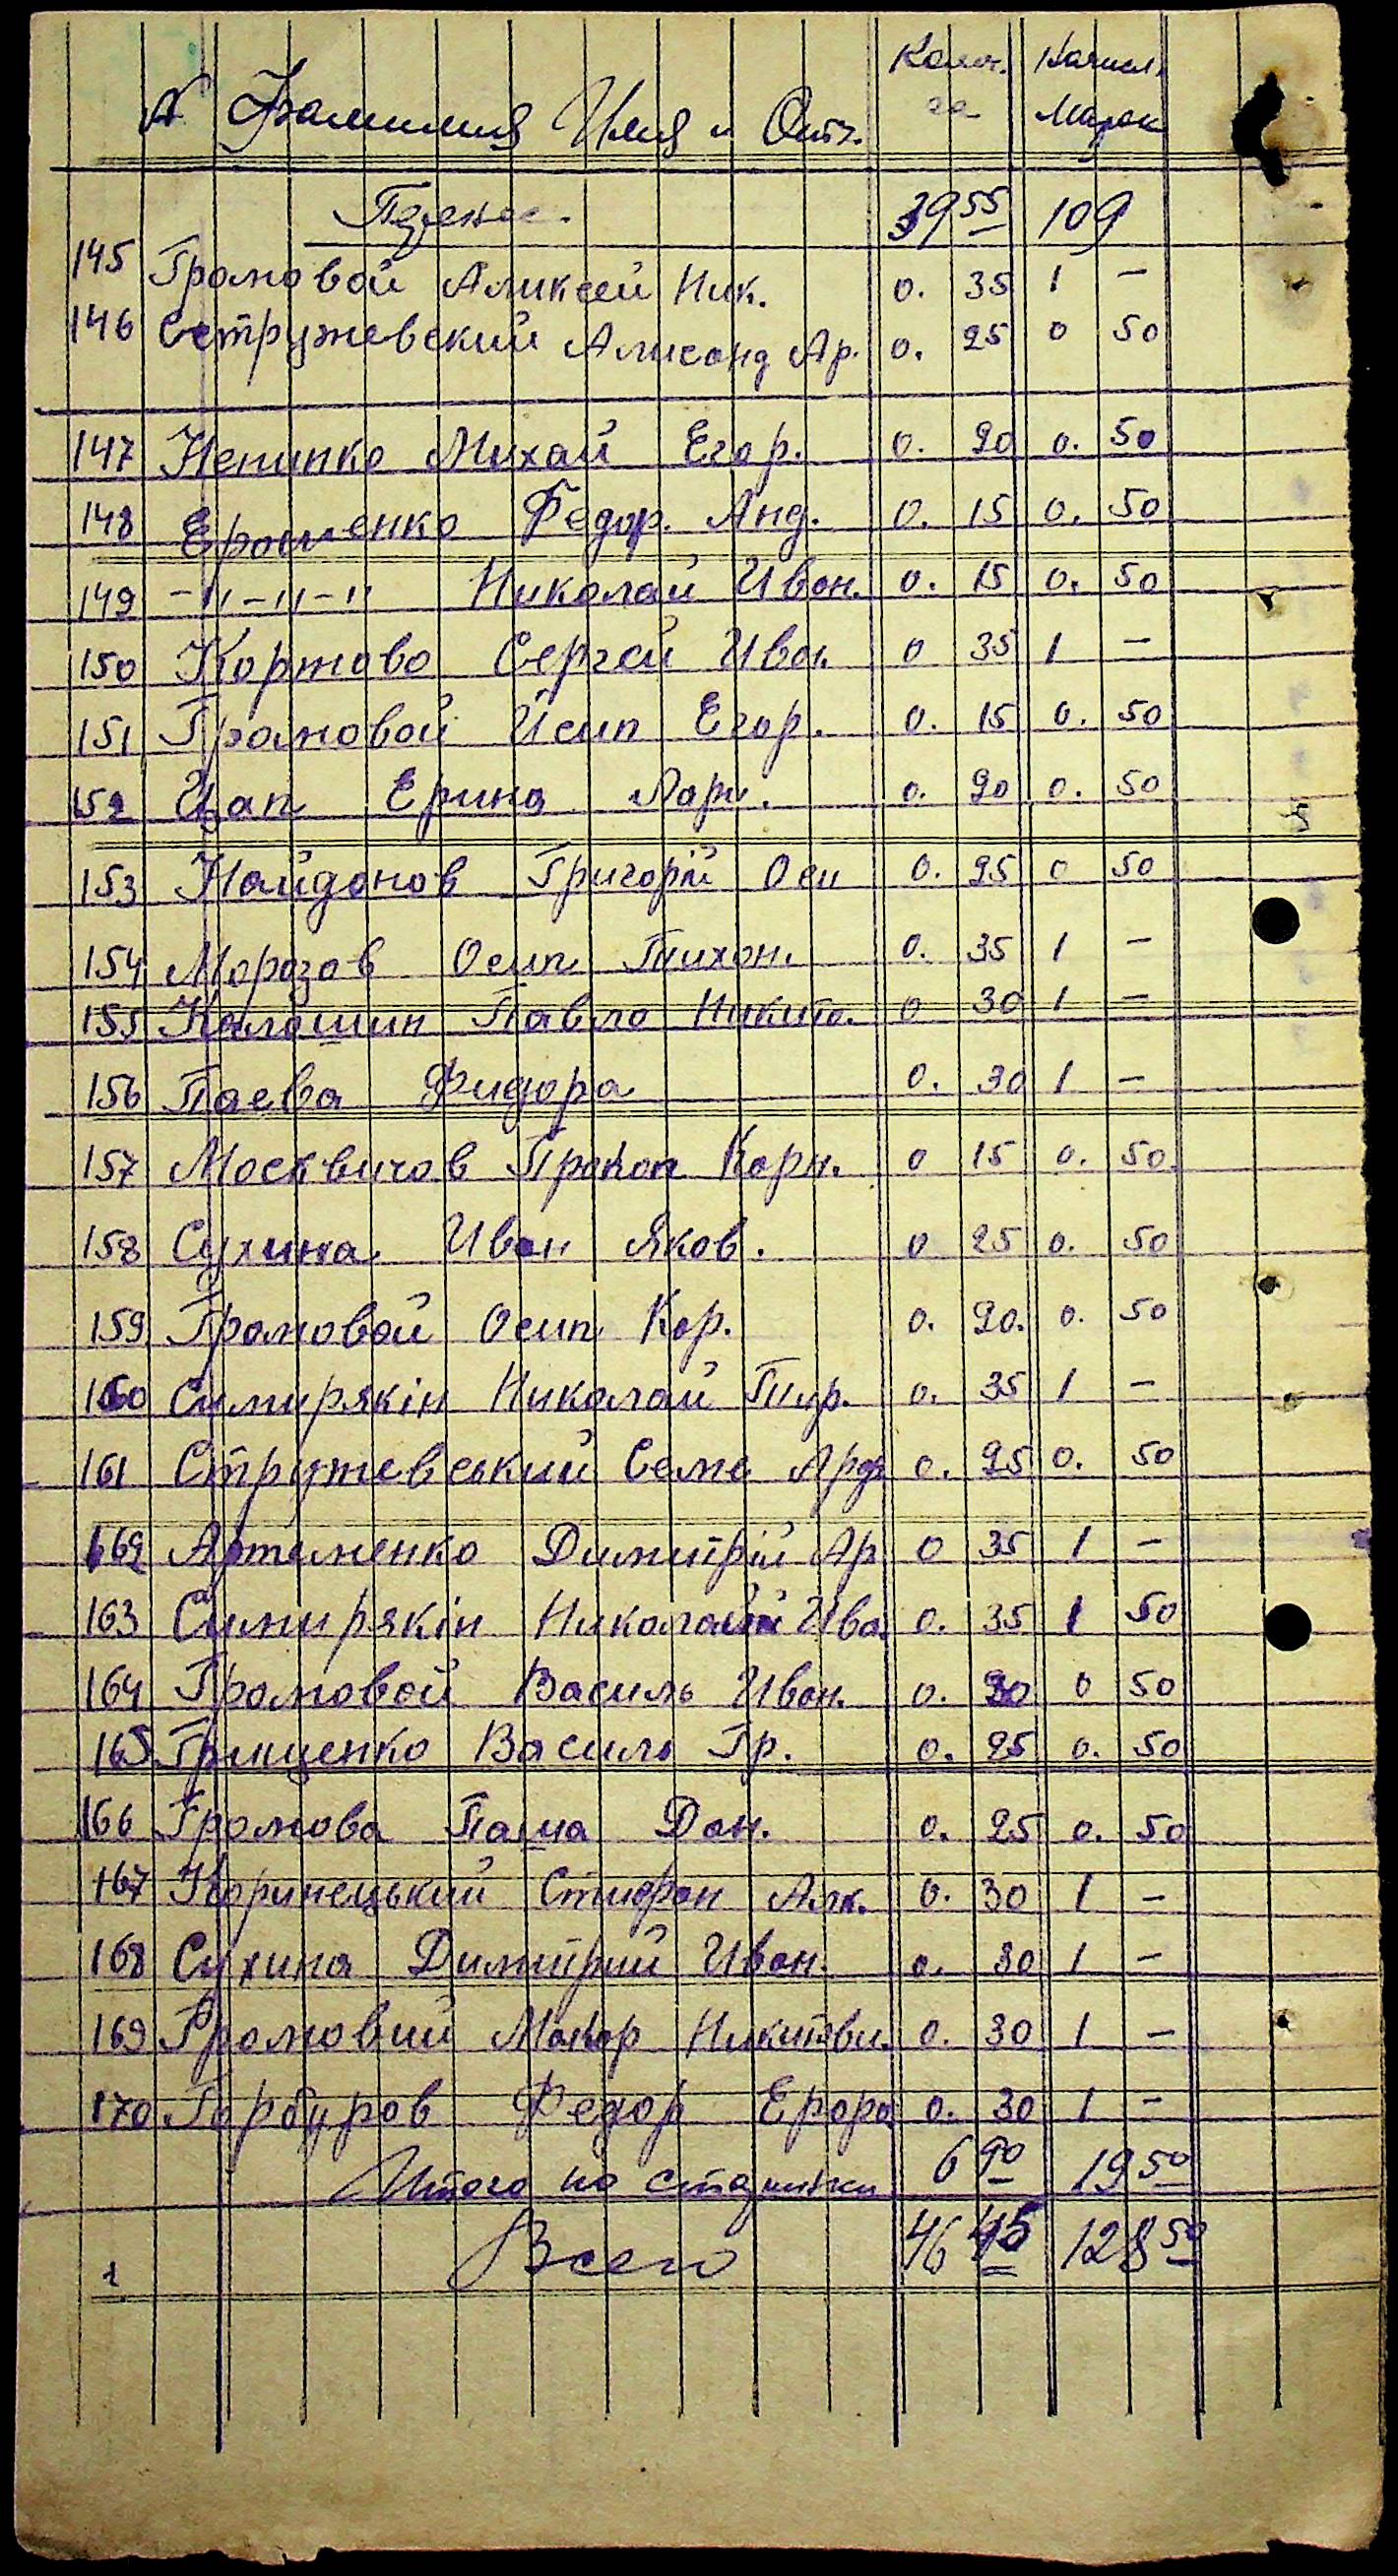 № Фамилия Имя и Отч. Колич. га Начисл. Марок
Перенос. 39 55 109
145 Громовой Аликсей Ник. 0. 35 1 –
146 Остружевский Алисанд Ар. 0. 25 0 50
147 Непипко Михай Егор. 0. 20 0. 50
148 Ерошенко Федор. Анд. 0. 15 0. 50
149 –"–"–" Николай Иван. 0. 15 0. 50
150 Коржово Сергей Иван. 0 35 1 –
151 Громовой Исип Егор. 0. 15 0. 50
152 Цап Ерина Лари. 0. 20 0. 50
153 Найдонов Григорій Оси 0. 25 0 50
154 Морозов Осип Тихон. 0. 35 1 –
155 Калошин Павло Никито. 0 30 1 –
156 Паева Фидора 0. 30 1 –
157 Москвичов Прокоп Корн. 0 15 0. 50
158 Сухина Иван Яков. 0 25 0. 50
159 Громовой Осип Кор. 0. 20. 0. 50
160 Симирякін Николай 0. 35 1 –
161 Стружевський Семе 0. 25 0. 50
162 Артеменко Димитрій Ар. 0 35 1 –
163 Симирякін Николай Ива. 0. 35 1 50
164 Громовой Василь Иван. 0. 20 0 50
165 Грищенко Василь Гр. 0. 25 0. 50
166 Громова Паша Дан. 0. 25 0. 50
167 Коринецький Стифан Алк. 0. 30 1 –
168 Сухина Димитрий Иван. 0. 30 1 –
169 Громовий Макар Никитови. 0. 30 1 –
170 Горбуров Федор 0. 30 1 –
Итого по странички 6 90 19 50
Всего 46 45 128 50